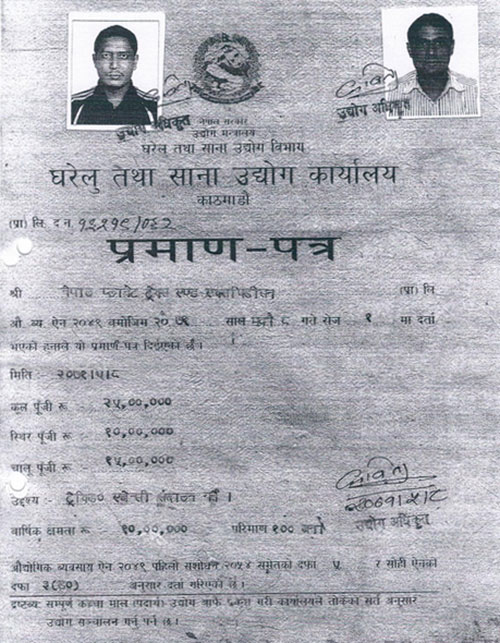 नेपाल सरकार
उद्योग मन्त्रालय
घरेलु तथा साना उद्योग विभाग
घरेलु तथा साना उद्योग कार्यालय
काठमाडौं
उद्योग अधिकृत
उद्योग अधिकृत
(प्रा) लि द नं
प्रमाण-पत्र
श्री नेपाल प्लानेट ट्रेक्स एण्ड (प्रा) लि
औ. ब्य. ऐन २०४९ बमोजिम २० ७१ साल ८ गते रोज १ मा दर्ता
भएको हुनाले यो प्रमाण-पत्र दिईएको छ।
मिति :- २०७१।५।८
कूल पूँजी रू :- २५,००,०००
स्थिर पूँजी रू :- १०,००,०००
चालु पूँजी रू :- १५,००,०००
उद्देश्य :- ट्रेकिङ
वार्षिक क्षमता रू :- १०,००,००० परिमाण १०० जना
२०७१।५।८
उद्योग अधिकृत
औद्योगिक ब्यवसाय ऐन २०४९ पहिलो संशोधन २०५४ समेतको दफा ५ र सोही ऐनको
दफा अनुसार दर्ता गरिएको छ।
द्रष्टव्य: सम्पूर्ण कच्चा माल (पदार्थ) उद्योग आफै गरी कार्यालयले तोकेको सर्त अनुसार
उद्योग सञ्चालन गर्नु पर्ने छ।